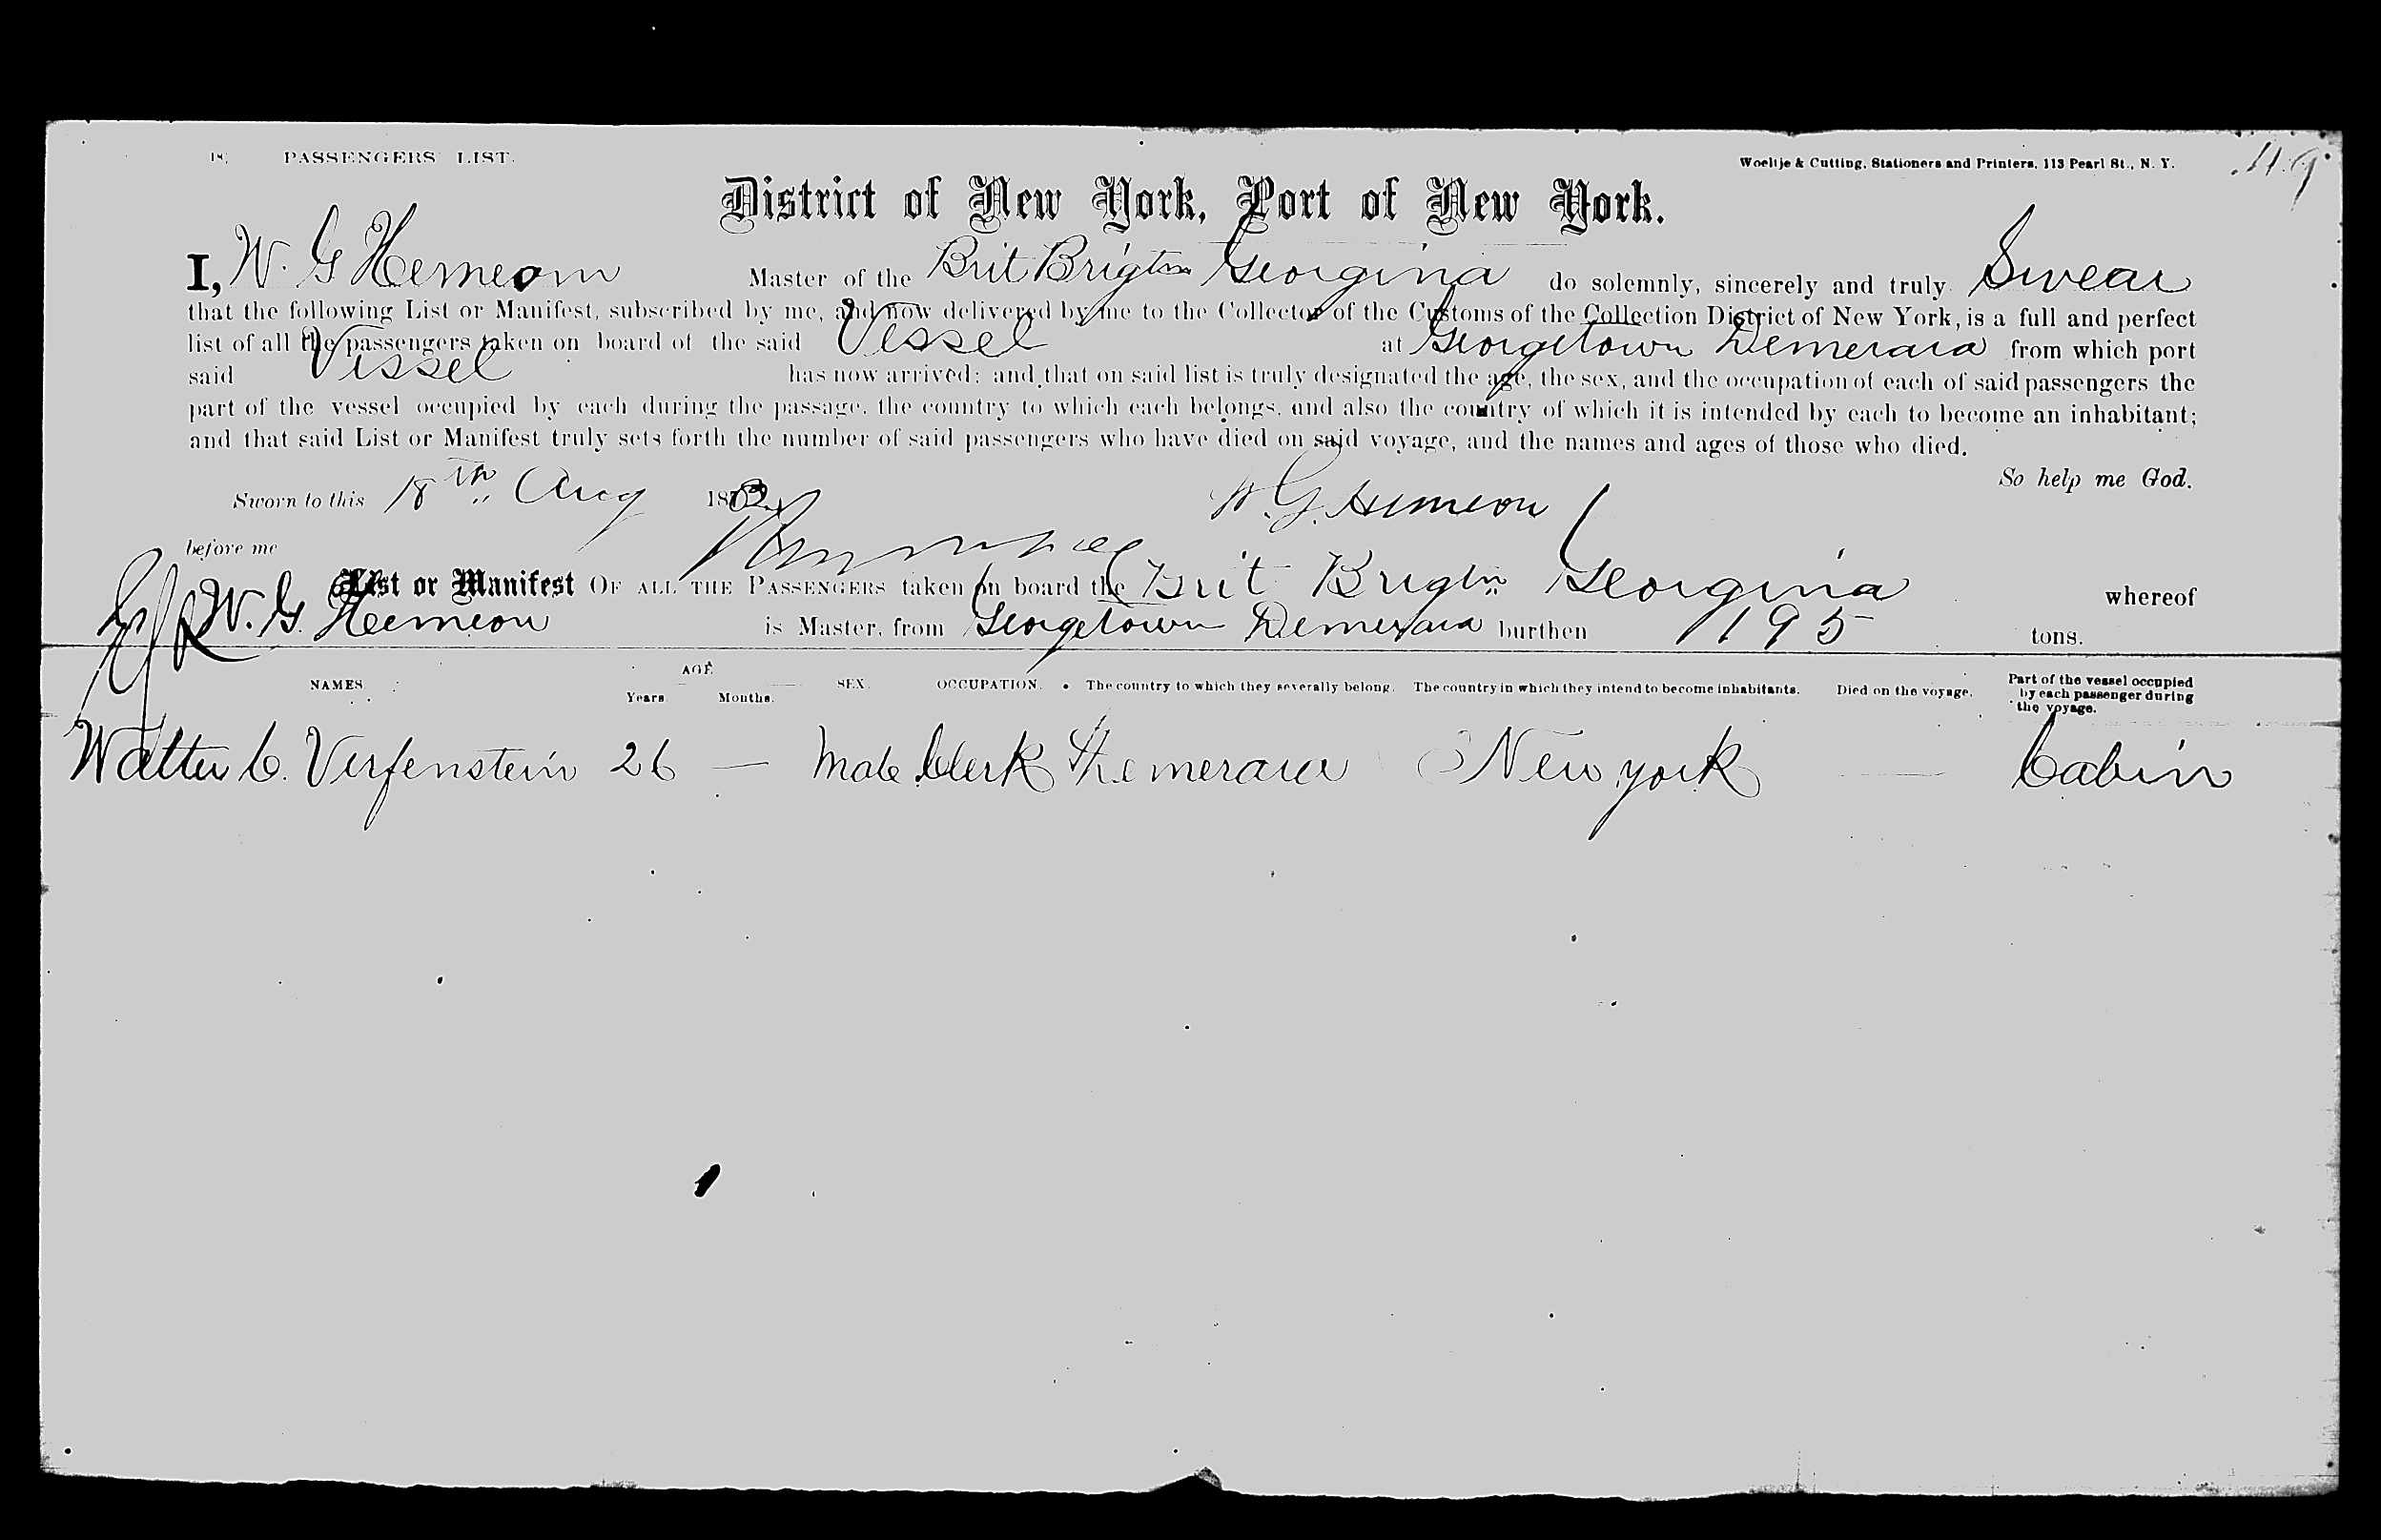 18. PASSENGERS LIST.
Woeltje & Cutting, Stationers and Printers, 113 Pearl St., N. Y.
District of New York, Port of New York.
I, W. G Hemeom Master of the Brit Brigtn Georgina do solemnly, sincerely and truly Swear
that the following List or Manifest, subscribed by me, and now delivered by me to the Collector of the Customs of the Collection District of New York, is a full and perfect
list of all the passengers taken on board of the said Vessel at Georgetown Demerara from which port
said Vessel has now arrived: and that on said list is truly designated the age, the sex, and the occupation of each of said passengers the
part of the vessel occupied by each during the passage, the country to which each belongs, and also the country of which it is intended by each to become an inhabitant;
and that said List or Manifest truly sets forth the number of said passengers who have died on said voyage, and the names and ages of those who died.
So help me God.
Sworn to this 18th Aug 18 W. G. Hemeon
before me
List or Manifest OF ALL THE PASSENGERS taken on board the Brit Brigtn Georgina whereof
W. G. Hemeon is Master, from Georgetown Demerara burthen 195 tons.
NAMES. AGE Years Months. SEX. OCCUPATION. The country to which they severally belong. The country in which they intend to become inhabitants. Died on the voyage. Part of the vessel occupied by each passenger during the voyage.
Walter C. Verfenstein 26 — Male Clerk Demerara New york — Cabin